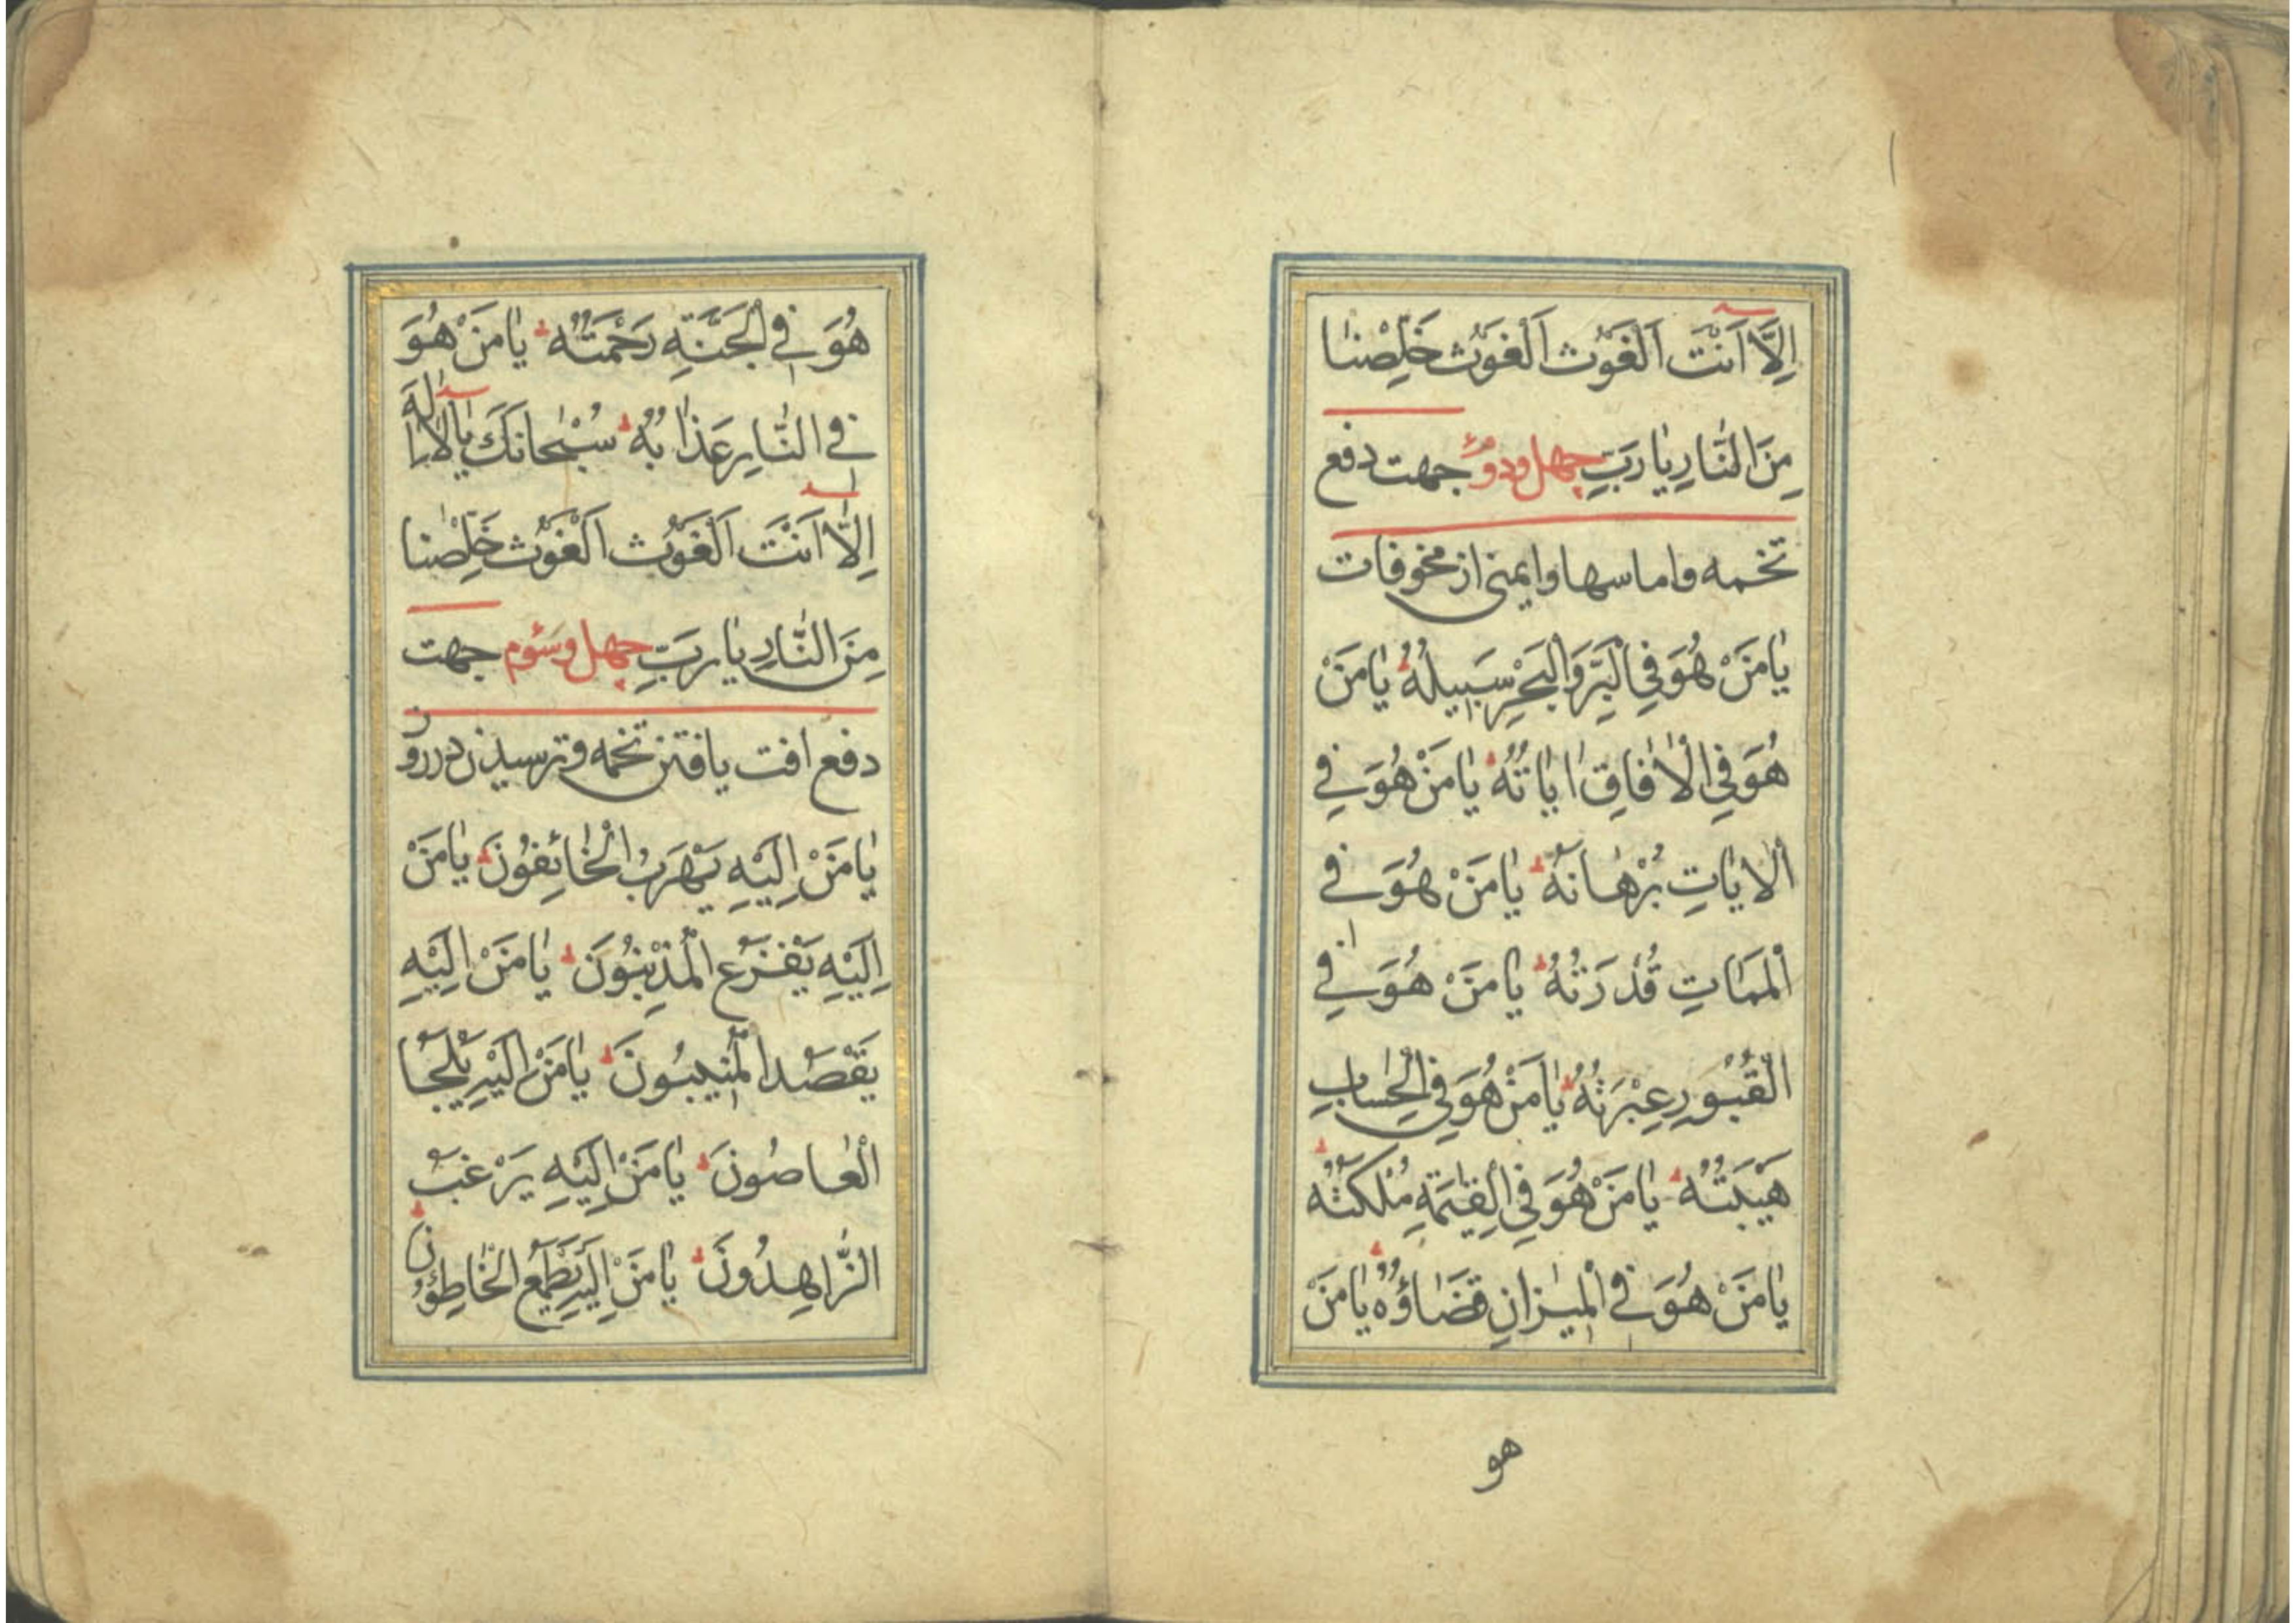 اِلَّا اَنْتَ اَلْغَوْث اَلْغَوْث خَلِّصْنٰا
مِنَ النّٰارِ يٰا رَبِّ چهل ودوم جهت دفع
تخمه واماسها وايمنى از مخوفات
يٰا مَنْ هُوَ فِى الْبَرِّ وَالْبَحْرِ سَبِيلُهُ يٰا مَنْ
هُوَ فِى الْاٰفٰاقِ اٰيٰاتُهُ يٰا مَنْ هُوَ فِى
اَلْاٰيٰاتِ بُرْهٰانُهُ يٰا مَنْ هُوَ فِى
اَلْمَمٰاتِ قُدْرَتُهُ يٰا مَنْ هُوَ فِى
الْقُبُورِ عِبْرَتُهُ يٰا مَنْ هُوَ فِى الْحِسٰابِ
هَيْبَتُهُ يٰا مَنْ هُوَ فِى الْقِيٰمَةِ مُلْكَتُهُ
يٰا مَنْ هُوَ فِى الْمِيزٰانِ قَضٰاؤُهُ يٰا مَنْ
هو
هُوَ فِى الْجَنَّةِ رَحْمَتُهُ يٰا مَنْ هُوَ
فِى النّٰارِ عَذٰابُهُ سُبْحٰانَكَ يٰا لٰا اِلٰهَ
اِلَّا اَنْتَ اَلْغَوْث اَلْغَوْث خَلِّصْنٰا
مِنَ النّٰارِ يٰا رَبِّ چهل وسوم جهت
دفع افت يافتن تخمه وترسيدن در روز
يٰا مَنْ اِلَيْهِ يَهْرَبُ الْخٰائِفُونَ يٰا مَنْ
اِلَيْهِ يَفْزَع الْمُذْنِبُونَ يٰا مَنْ اِلَيْهِ
يَقْصُد الْمُنِيبُونَ يٰا مَنْ اِلَيْهِ يَلْجَا
الْعٰاصُونَ يٰا مَنْ اِلَيْهِ يَرْغَبُ
الزّٰاهِدُونَ يٰا مَنْ اِلَيْهِ يَطْمَع الْخٰاطِؤُنَ